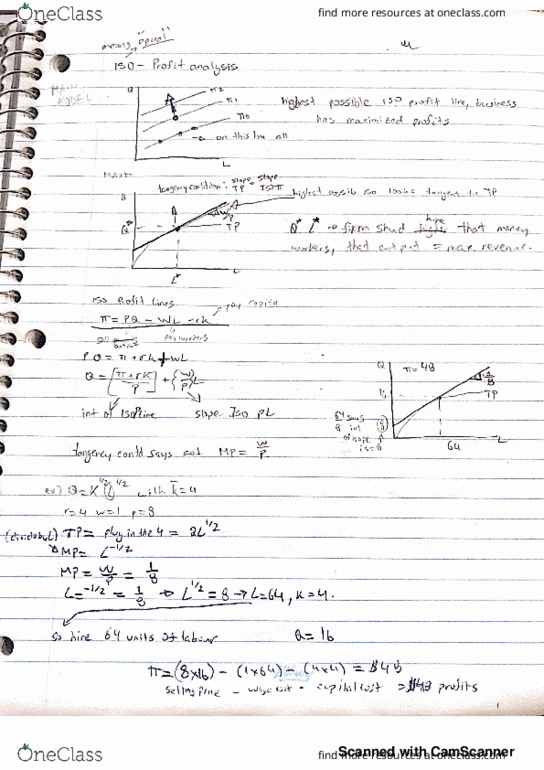 OneClass
find more resources at oneclass.com
means "equal"
ISO - Profit analysis
MAIN MODEL
Q
π2
π1
π0
L
on this line all
highest possible ISO profit line, business
has maximized profits
tangency condition: slope TP = slope ISOπ
Q
TP
Q*
L*
L
highest possib iso tangent to TP
Q* L* → firm shud hope that money
workers, that output = max revenue.
iso profit lines
pay capital
π = PQ - WL - rk
pay workers
PQ = π + rk + wL
Q = [π+rk/P] + (W/P)L
int of Isopline
slope Iso pL
Q
π=48
1/8
TP
64
L
8 int
tangency could says cat MP = W/P
ex) Q = K^1/2 L^1/2 with k̄=4
r=4 w=1 p=8
TP = plug in the 4 = 2L^1/2
MP = L^-1/2
MP = W/P = 1/8
L^-1/2 = 1/8 → L^1/2 = 8 → L=64, K=4.
so hire 64 units of labour
Q=16
π = (8x16) - (1x64) - (4x4) = $48
selling price - wage cost - capital cost = $48 profits
OneClass
find more resources at oneclass.com
Scanned with CamScanner